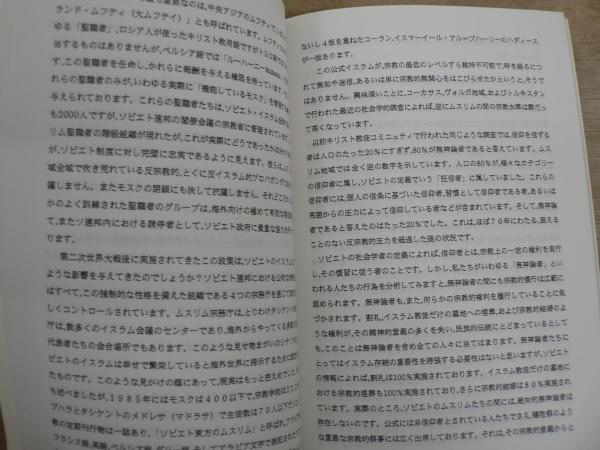 ランド・ムフティ（大ムフティ）」とも呼ばれています。ムフティ
ゆる「聖職者」、ロシア人が使ったキリスト教用語ですがトルコ語で
当するものはありませんが、ペルシア語では「ルーハーニー
す。この聖職者を任命し、かれらに報酬を与える権限を持っています。
の聖職者のみが、いわゆる実際に「機能しているモスク」を管理
与えられております。これらの聖職者たちは、ソビエト・イスラム全体で
も2000人ですが、ソビエト連邦の閣僚会議の宗教省に管理されています
リム聖職者の階級組織が現れたが、これが実際にどうであったかは
が、ソビエト制度に対し完璧に忠実であるように見えます。彼らは
域全域で吹き荒れている反宗教的、とくに反イスラム的プロパガンダに
議しません。またモスクの閉鎖にも決して抗議しません。それどころか
かのよく訓練された聖職者のグループは、海外向けの極めて有効な
て、またソ連邦内における調停者として、ソビエト政府に貴重な協力を
ります。
第二次世界大戦後に実施されてきたこの政策は、ソビエトのイ
ような影響を与えてきたのでしょうか？ソビエト連邦における公的な
はすべて、この強制的な性格を備えた組織である4つの宗務庁を通じて
しくコントロールされています。ムスリム宗務庁はとりわけタシケント
庁は、数多くのイスラム会議のセンターであり、海外からやってくる多く
代表者たちの会合場所でもあります。このような見せ物まがいのシナリ
ビエトのイスラムは幸せで繁栄していると海外世界に誇示するために
たものです。このような見かけの煙にあって、現実はもっと控えめで
も述べましたが、1985年にはモスクは400以下で、宗教学校は2
ブハラとタシケントのメドレサ（マドラサ）で生徒数は70人以下
教の定期刊行物は一誌あり、「ソビエト東方のムスリム」と呼ばれ、ア
フランス語、英語、ペルシア語、ダリー語、そしてアラビア文字で表記された
ないし4版を重ねたコーラン、イスマーイール・アル＝ブハーリーのハディース
が一版あります。
この公式イスラムが、宗教の最近のレベルすら維持不可能で、時を経るにつ
れて無知や迷信、あるいは単に宗教的無関心をはこびらせたかというと、そうで
はありません。興味深いことに、コーカサス、ヴォルガ地域、およびトルキスタン
で行われた最近の社会学的調査によれば、逆にムスリムの間の宗教水準は断だっ
て高くなっています。
以前キリスト教徒コミュニティで行われた同じような調査では、信仰を信ずる
者は人口のたった20%にすぎず、80%が無神論者であると答えています。ムス
リム地域では全く逆の数字を示しています。人口の80%が、様々なカテゴリー
の信仰者に属し、ソビエトの定義でいう「狂信者」に属していました。これらの
信仰者には、個人の信条に基づいた信仰者、習慣として信仰者である者、あるいは
周囲からの圧力によって信仰している者などが含まれています。そして、無神論
者であると答えたのはたった20%でした。これは、ほぼ70年にわたる、衰える
ことのない反宗教的圧力を経過した後の状況です。
ソビエトの社会学者の定義によれば、信仰者とは、宗教上の一定の権利を実行
し、その慣習に従う者のことです。しかし、私たちがいわゆる「無神論者」とい
われる人たちの行為を分析してみますと、無神論者の間にも宗教的慣行は広範に
認められます。無神論者も、また、何らかの宗教的権利を履行していることに気
がつかされます。割礼、イスラム教徒だけの墓地への埋葬、および宗教的結婚のよ
うな権利が、その精神的意義の多くを失い、民族的伝統にとどまっているとして
も、このことは無神論者を含め全ての人々に当てはまります。無神論者たちに
とってはイスラム存続の重要性を誇張する必要性はないと思いますが、ソビエト
の情報によれば、割礼は100%実施されております。イスラム教徒だけの墓地に
おける宗教的埋葬も100%実施されており、さらに宗教的結婚は80%実施され
ています。実際のところ、ソビエトのムスリムたちの間には、絶対的無神論者は
存在しないのです。公式には非信仰者とされている人たちでさえ、犠牲祭のよう
な重要な宗教的祭事には広く出席しております。それは、その宗教的意義からと